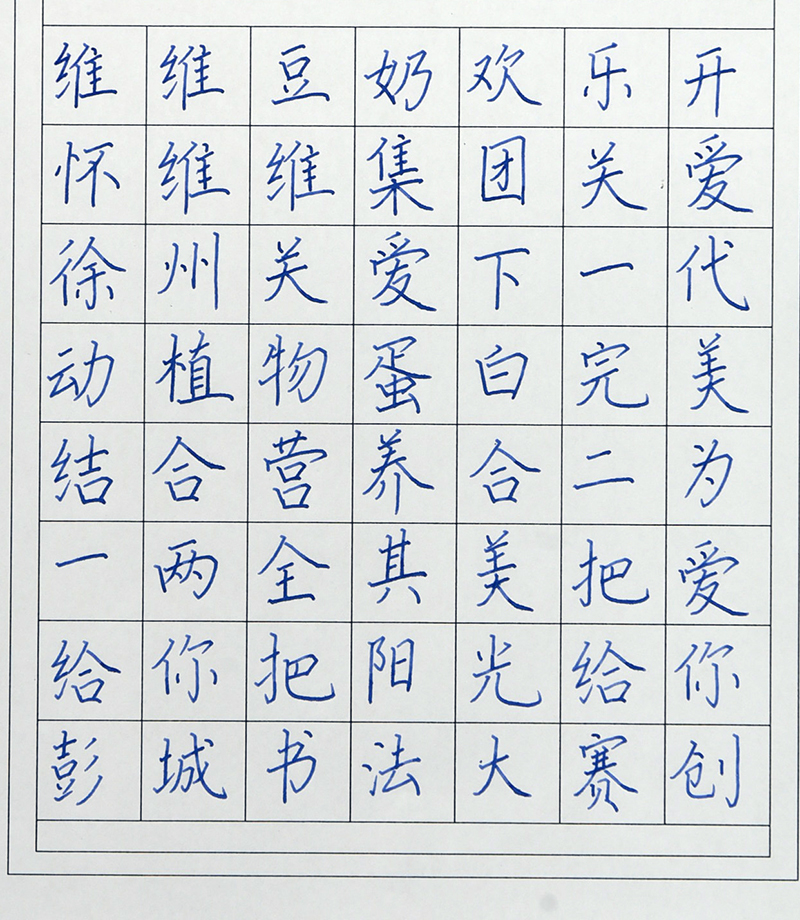 维维豆奶欢乐开
怀维维集团关爱
徐州关爱下一代
动植物蛋白完美
结合营养合二为
一两全其美把爱
给你把阳光给你
彭城书法大赛创